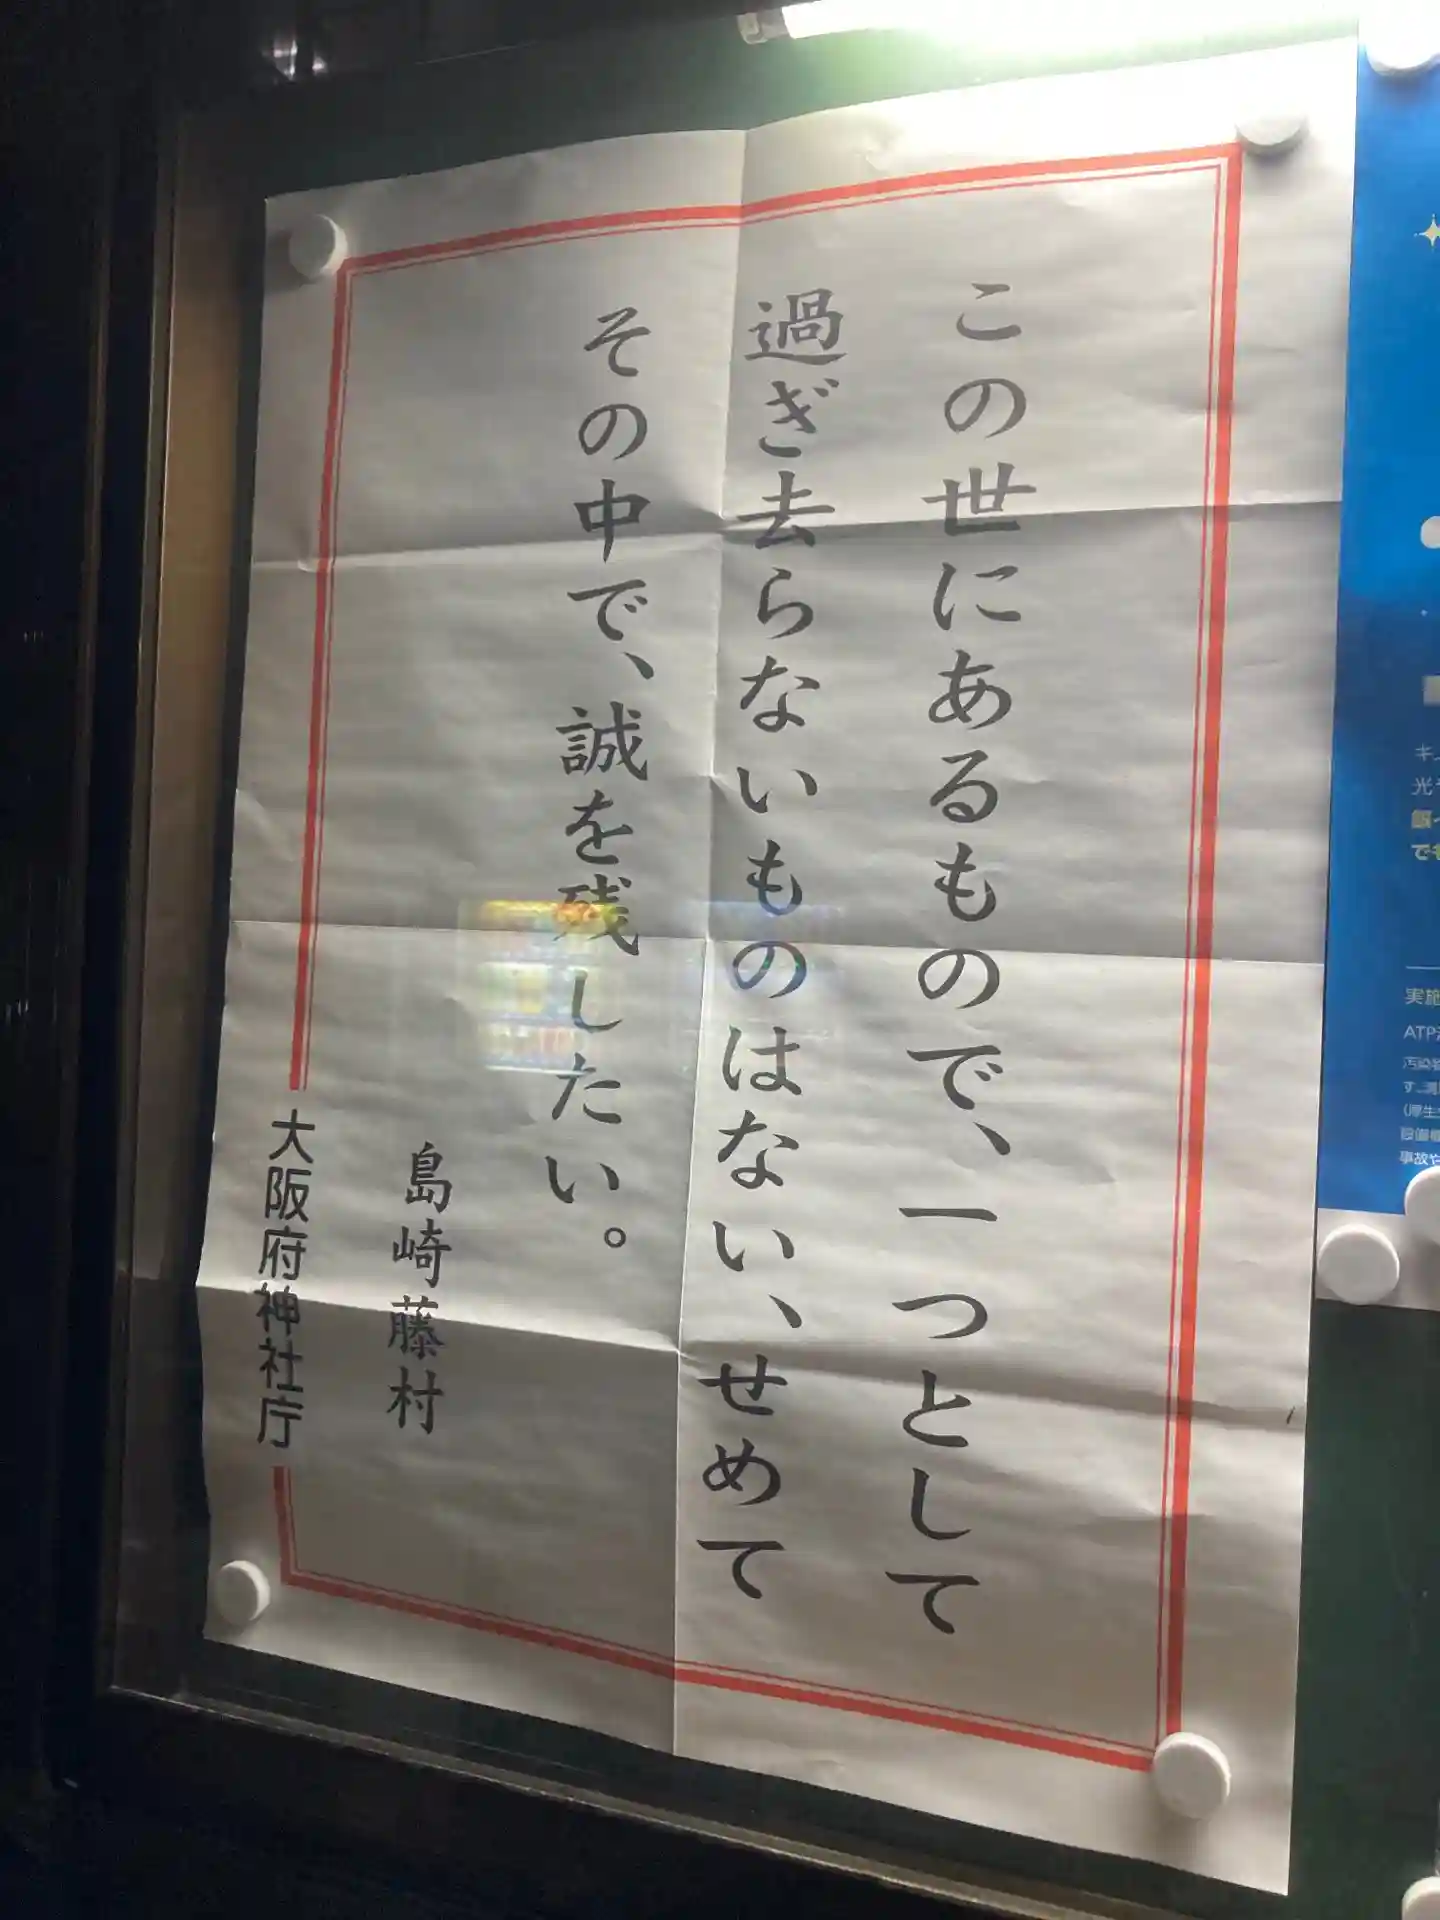 この世にあるもので、一つとして
過ぎ去らないものはない、せめて
その中で、誠を残したい。
島崎藤村
大阪府神社庁
実施
ATP
汚染
す。
(厚生
設備
事故や